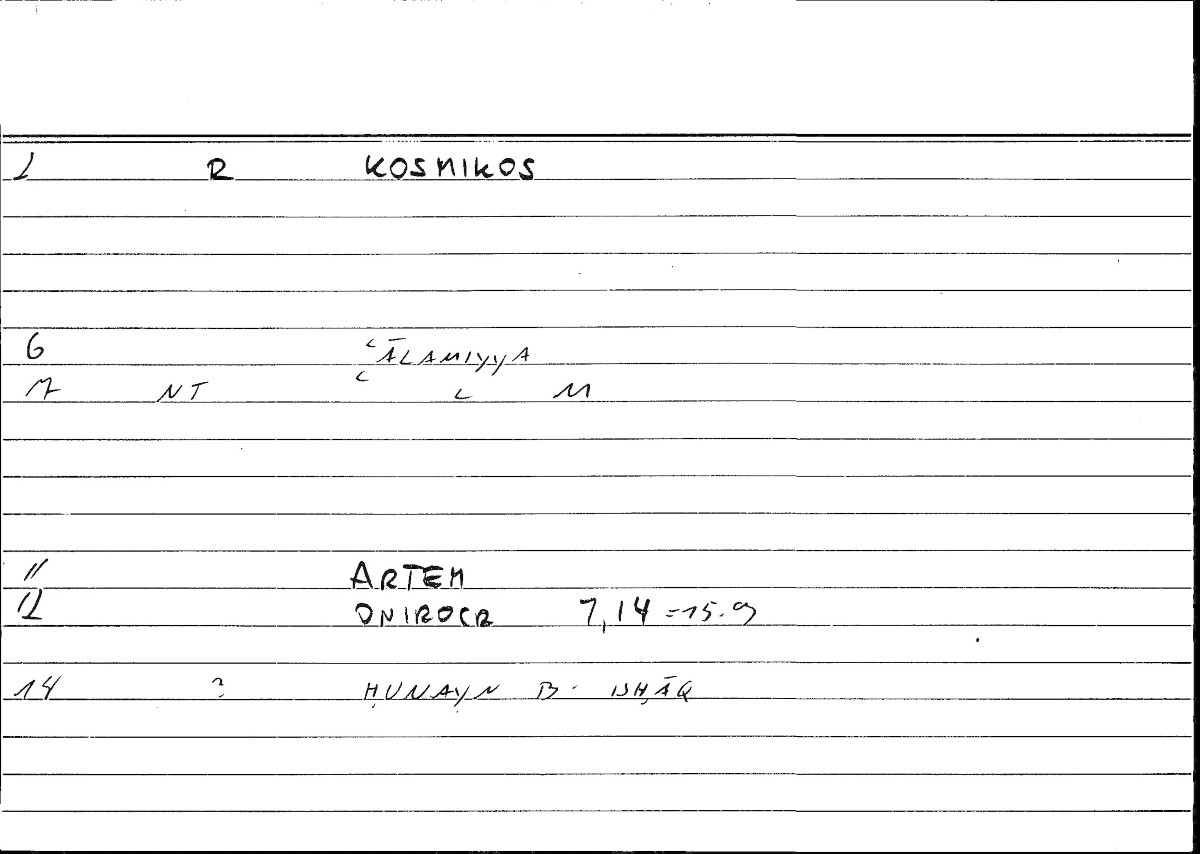 1 R KOSMIKOS
6 ʿĀLAMIYYA
7 NT ʿ ʿ M
11 ARTEM
12 ONIROCR 7,14 = 15.9
14 ? ḤUNAYN B. ISḤĀQ